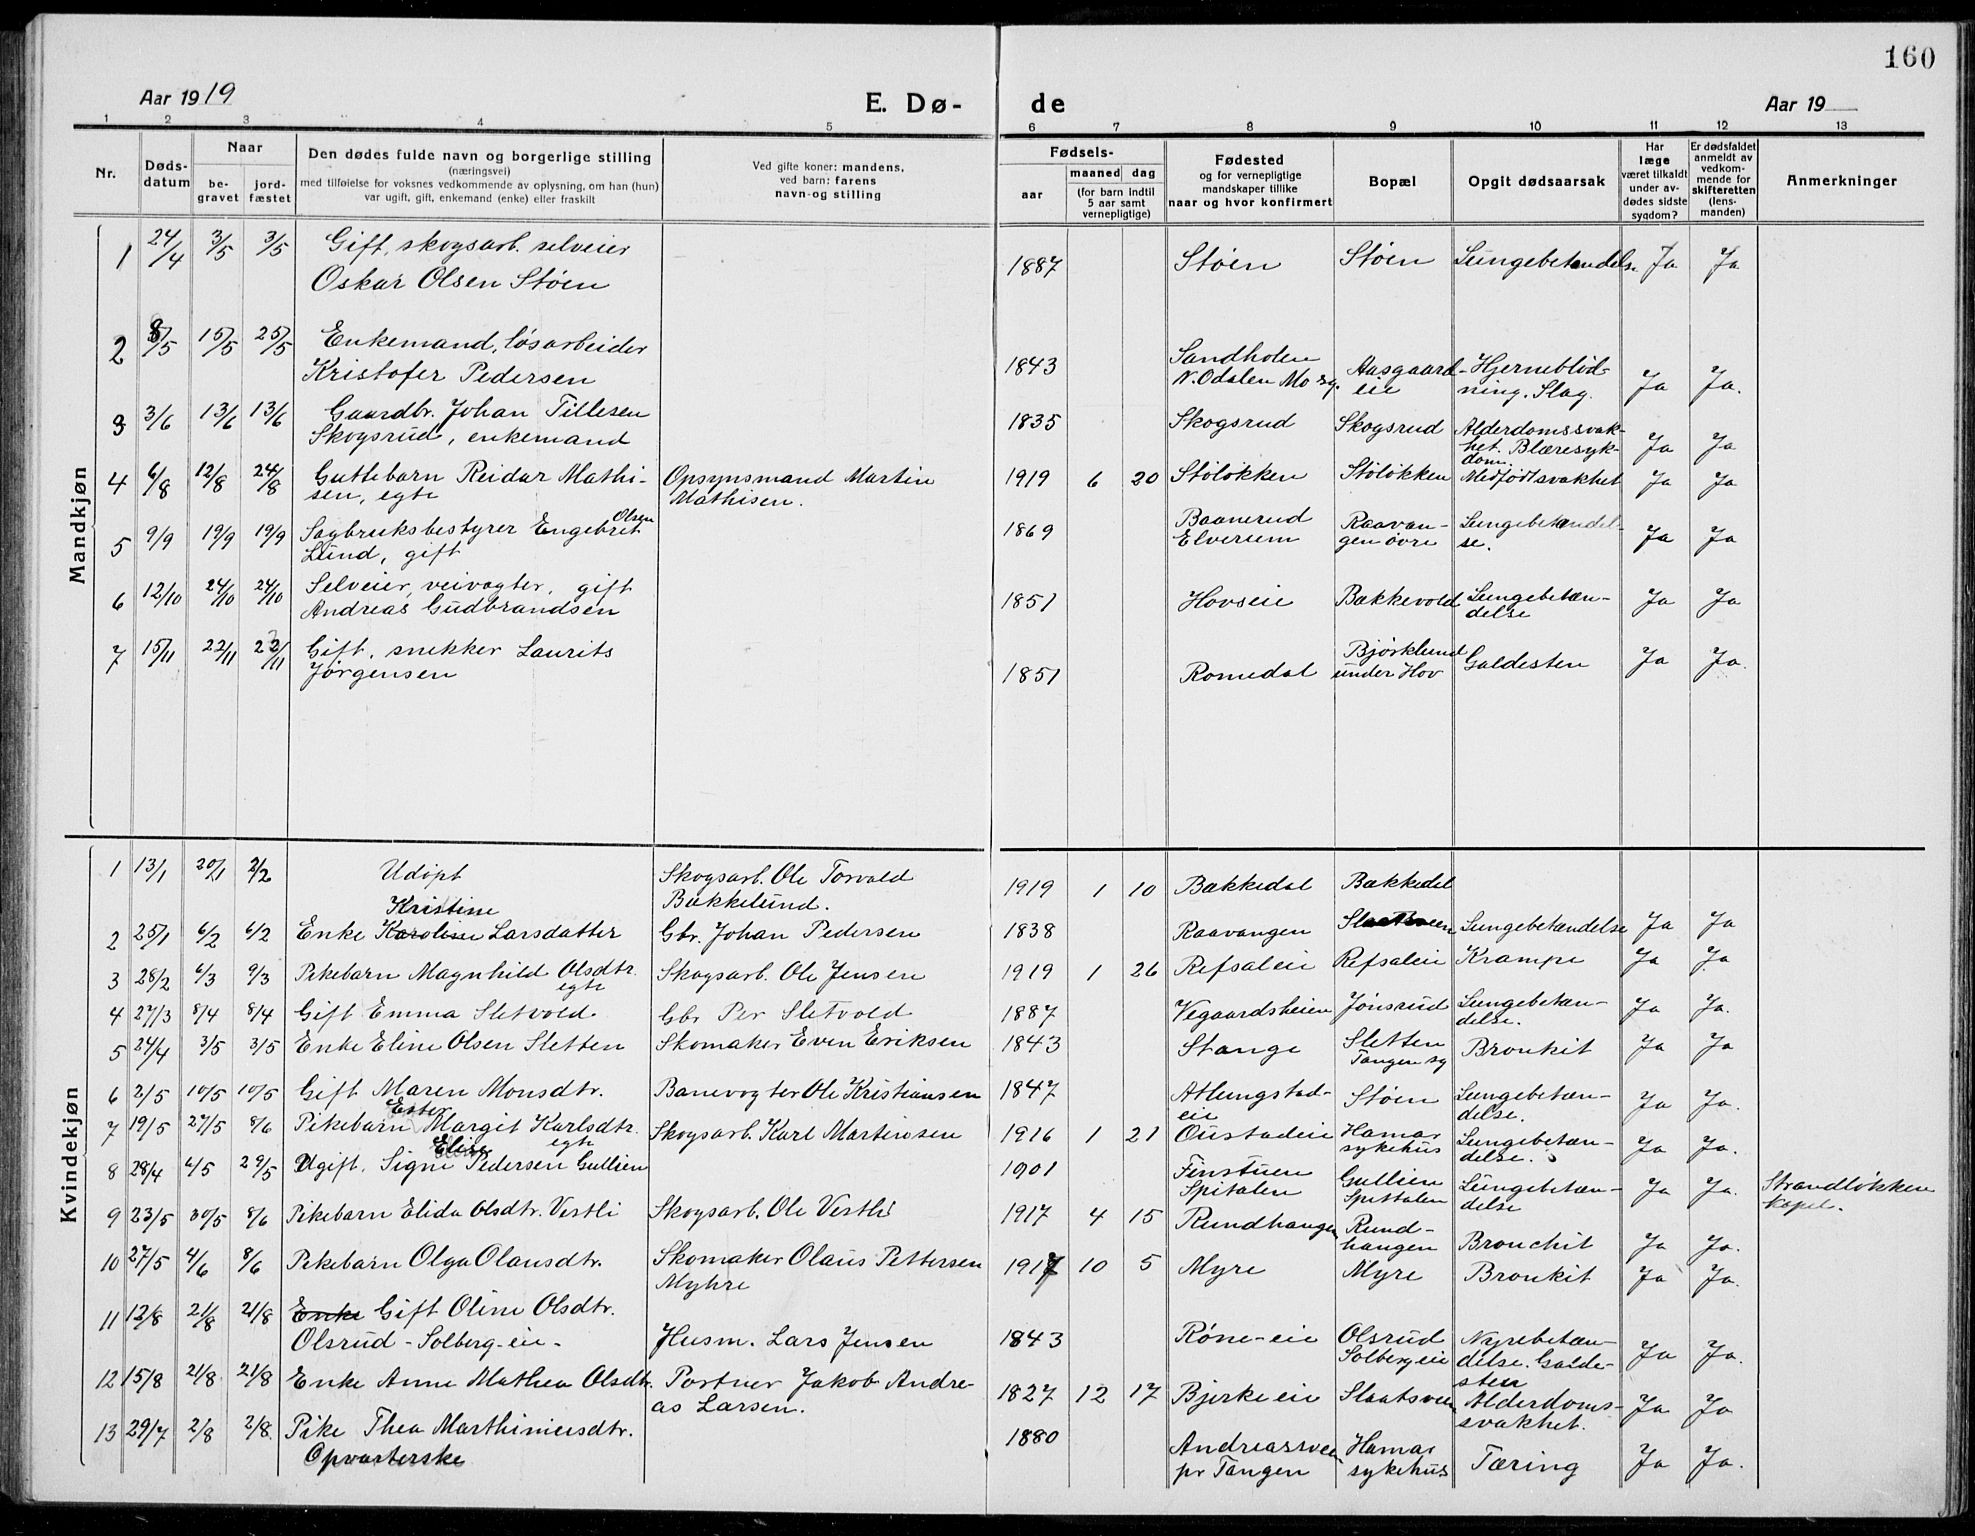 160
Aar 1919
E. Dø-
de
Aar 19
1 2 3 4 5 6 7 8 9 10 11 12 13
Nr.
Døds-
datum
Naar
be-
gravet
jord-
fæstet
Den dødes fulde navn og borgerlige stilling
(næringsvei)
med tilføielse for voksnes vedkommende av oplysning, om han (hun)
var ugift, gift, enkemand (enke) eller fraskilt
Ved gifte koner: mandens,
ved barn: farens
navn og stilling
Fødsels-
aar
maaned dag
(for barn indtil
5 aar samt
vernepligtige)
Fødested
og for vernepligtige
mandskaper tillike
naar og hvor konfirmert
Bopæl
Opgit dødsaarsak
Har
læge
været tilkaldt
under av-
dødes sidste
sygdom?
Er dødsfaldet
anmeldt av
vedkom-
mende for
skifteretten
(lens-
manden)
Anmerkninger
Mandkjøn
1 24/4 3/5 3/5 Gift, skogsarb. selveier
Oskar Olsen Støen
1887 Støen Støen Lungebetændelse Ja Ja
2 8/5 15/5 25/5 Enkemand, løsarbeider
Kristofer Pedersen
1843 Sandholen
N. Odalen Mo sg. Aasgaard-
eie Hjerneblød-
ning. Slag. Ja Ja.
3 3/6 13/6 13/6 Gaardbr. Johan Tillesen
Skogsrud, enkemand
1835 Skogsrud Skogsrud Alderdomssvak-
het. Blæresyk-
dom. Ja Ja
4 6/8 12/8 24/8 Guttebarn Reidar Mathi-
sen, egte
Opsynsmand Martin
Mathisen.
1919 6 20 Støløkken Støløkken Medfødt svakhet Ja Ja
5 9/9 19/9 19/9 Sagbruksbestyrer Engebret Olsen
Lund, gift
1869 Baanerud
Elverum Raavan-
gen øvre Lungebetændel-
se. Ja Ja
6 12/10 24/10 24/10 Selveier, veivogter, gift
Andreas Gudbrandsen
1851 Hovseie Bakkevold Lungebetæn-
delse Ja Ja
7 15/11 22/11 22/11 Gift, snekker Laurits
Jørgensen
1851 Romedal Bjørklund
under Hov Galdesten Ja Ja.
Kvindekjøn
1 13/1 20/1 2/2 Udøpt Skogsarb. Ole Torvald
Bakkelund.
1919 1 10 Bakkedal Bakkedal
Kristine
2 25/1 6/2 6/2 Enke Karoline Larsdatter Gbr. Johan Pedersen
1838 Raavangen Slaatsveen Lungebetændelse Ja Ja
3 28/2 6/3 9/3 Pikebarn Magnhild Olsdtr.
egte Skogsarb. Ole Jensen
1919 1 26 Refsaleie Refsaleie Krampe Ja Ja
4 27/3 8/4 8/4 Gift Emma Sletvold Gbr Per Sletvold
1887 Vegaardsheien Jønsrud Lungebetæn-
delse. Ja Ja.
5 24/4 3/5 3/5 Enke Eline Olsen Sletten Skomaker Even Eriksen
1843 Stange Sletten
Tangen sg Bronkit Ja Ja
6 2/5 10/5 10/5 Gift Maren Monsdtr. Banevogter Ole Kristiansen
1847 Atlungstad-
eie Støen Lungebetæn-
delse. Ja Ja.
Ester
7 19/5 27/5 8/6 Pikebarn Margit Karlsdtr.
egte Skogsarb. Karl Martinsen
1916 1 21 Oustadeie Hamar
sykehus Lungebetæn-
delse. Ja Ja.
Elise
8 28/4 6/5 29/5 Ugift. Signe Pedersen Gullien
1901 Finstuen
Spitalen Gullien
Spittalen Lungebetæn-
delse Ja Ja. Strandløkken
kapel.
9 23/5 30/5 8/6 Pikebarn Elida Olsdtr. Vestli Skogsarb. Ole Vestli
1917 4 15 Rundhaugen Rund-
haugen Bronchit Ja Ja.
10 27/5 4/6 8/6 Pikebarn Olga Olausdtr. Skomaker Olaus Pettersen
Myhre
1917 10 5 Myre Myre Bronkit Ja Ja.
11 12/8 21/8 21/8 Enke Gift Oline Olsdtr.
Olsrud - Solberg-eie - Husm. Lars Jensen
1843 Røne-eie Olsrud
Solbergeie Nyrebetæn-
delse. Galde-
sten Ja Ja.
12 15/8 21/8 21/8 Enke Anne Mathea Olsdtr. Portner Jakob Andre-
as Larsen.
1827 12 17 Bjerke eie Slaatsveen Alderdoms-
svakhet. Ja Ja
13 29/7 2/8 2/8. Pike Thea Marthiniusdtr.
Opvarterske
1880 Andreassveen
pr Tangen Hamar
sykehus Tæring Ja Ja.